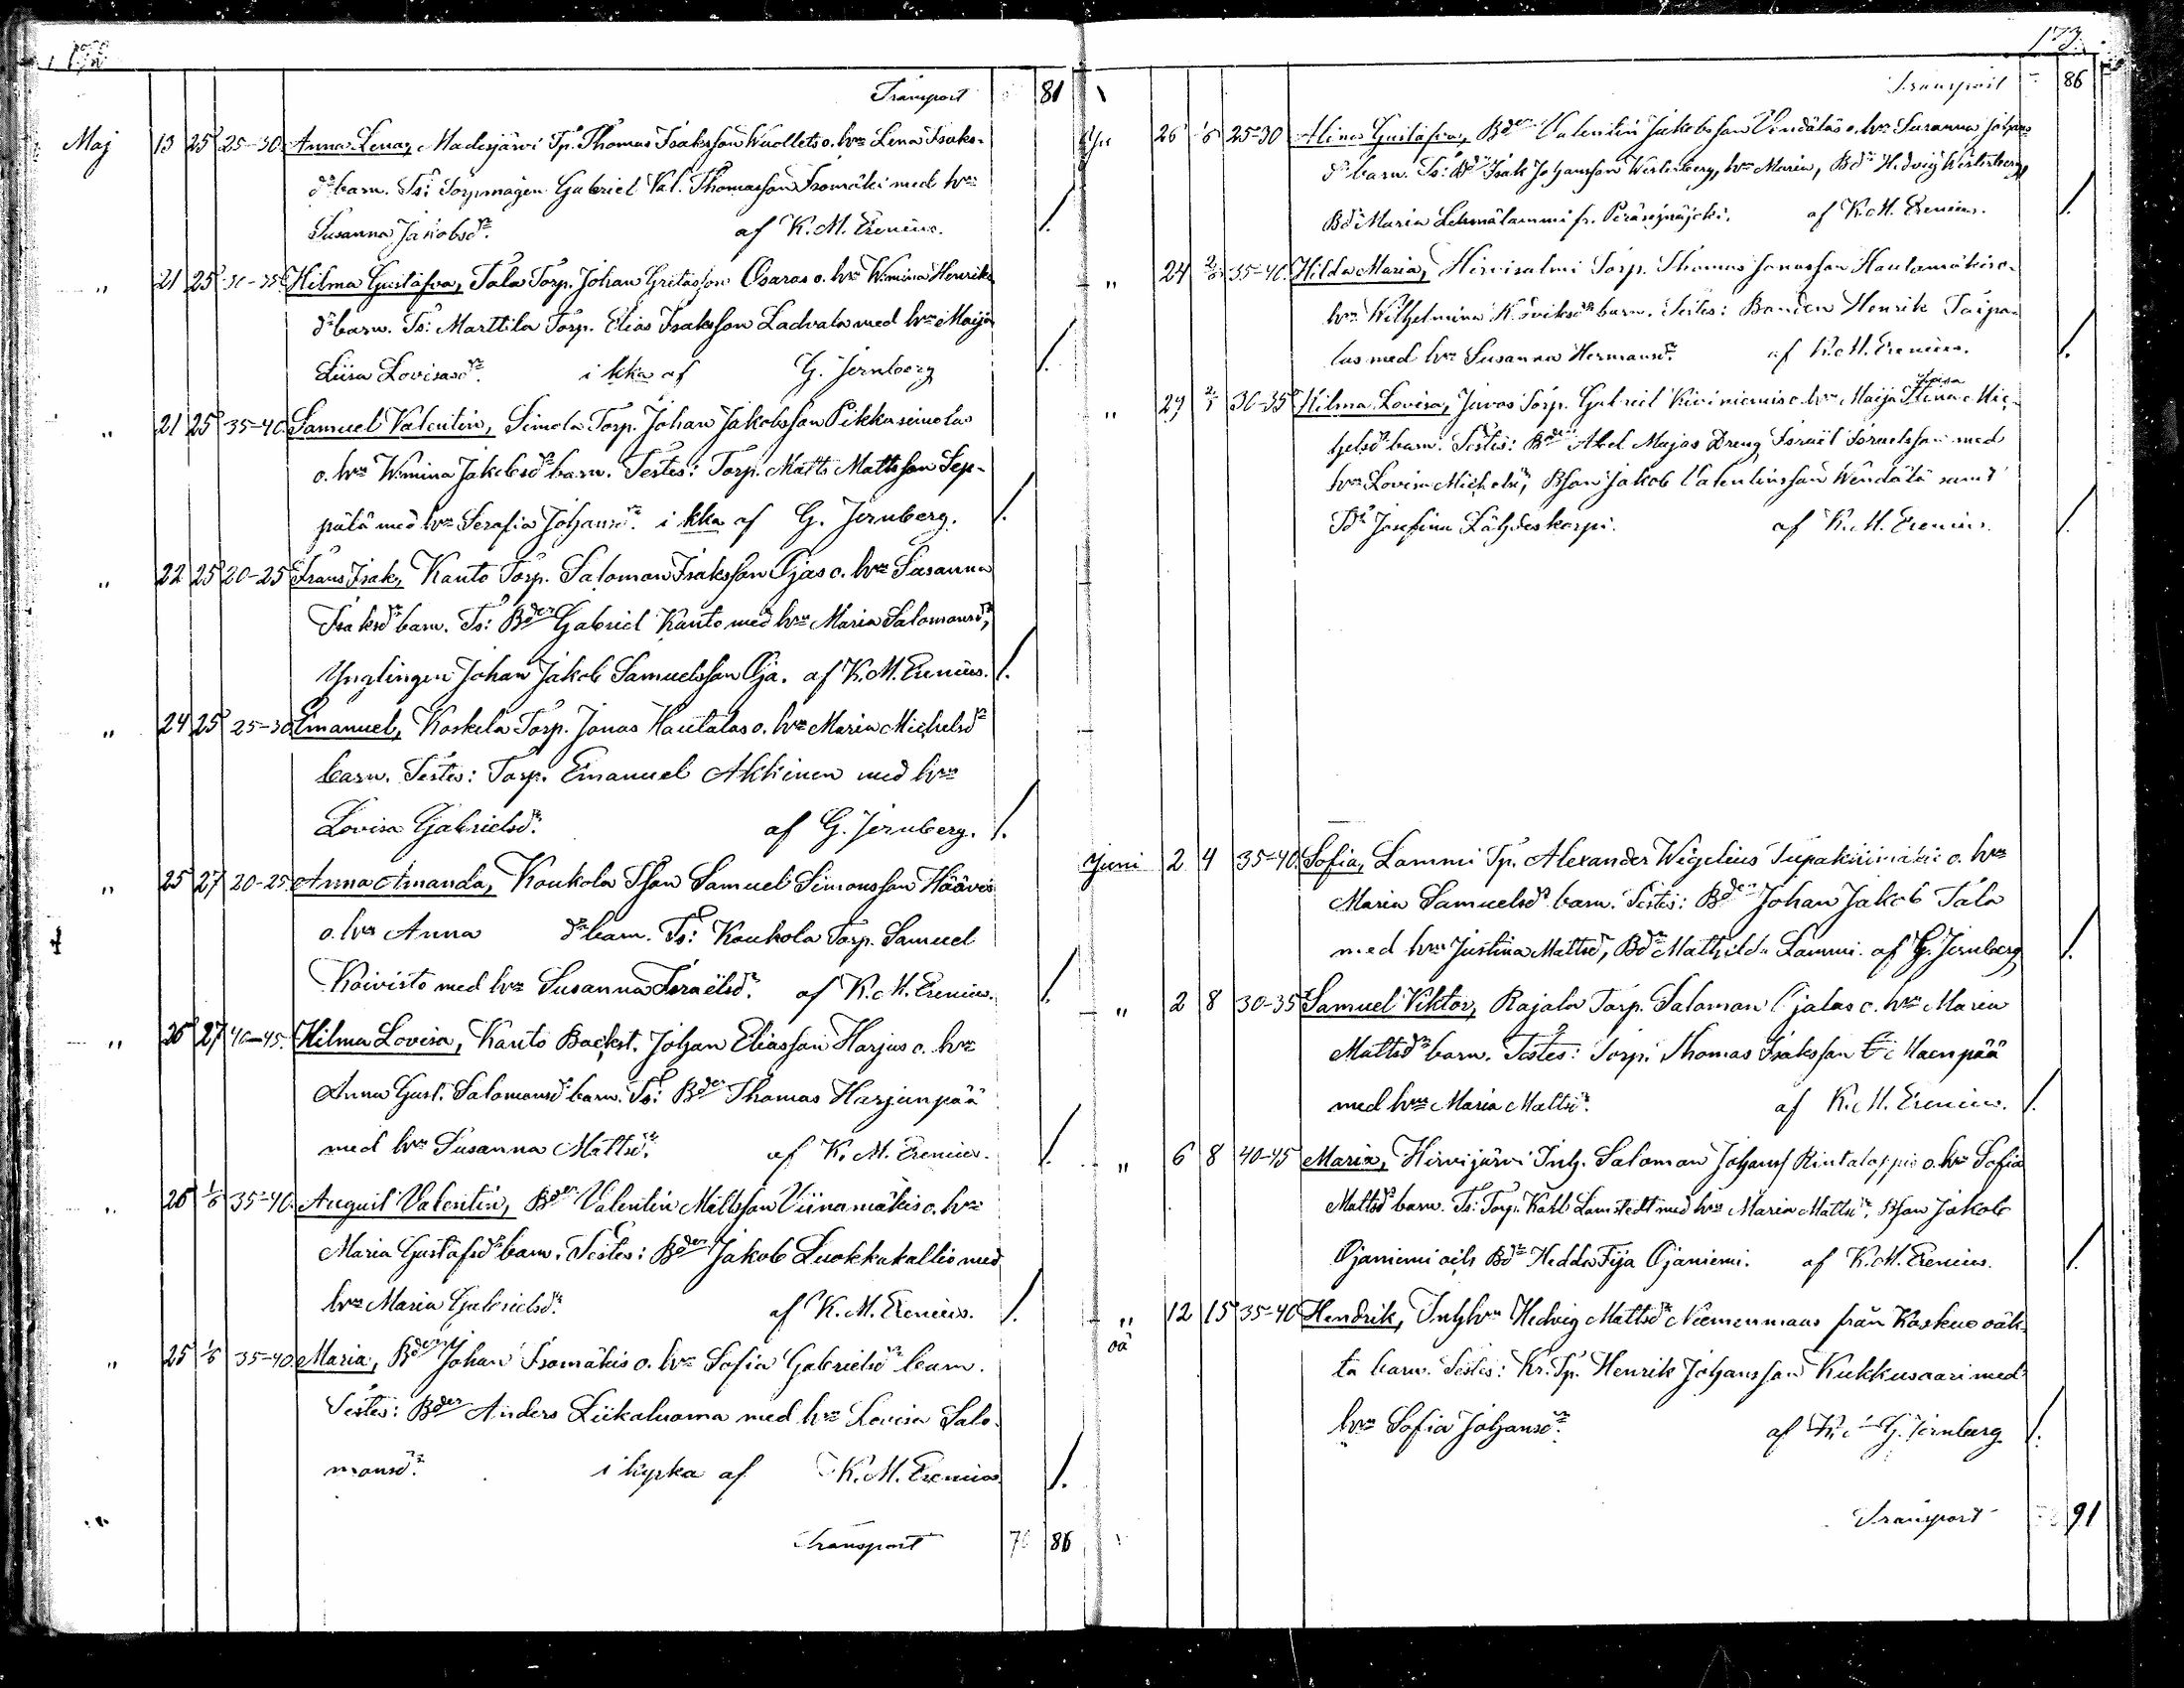 172
Transport 81
Maj 13 25 25-30 Anna Lena, Madesjärvi Tp. Thomas Isaksson Wuollets o. hru Lena Isaks-
dr barn. Ts: Torpmågen Gabriel Val. Thomasson Isomäki med hru
Susanna Jakobsdr. af K. M. Erenius. /.
" 21 25 30-35 Hilma Gustafva, Tala Torp. Johan Gretasson Osaras o. hru Wmina Henriks
dr barn. Ts: Marttila Torp. Elias Isaksson Ladvala med hru Maija
Liisa Lovisasdr. i kka af G. Jernberg /.
" 21 25 35-40 Samuel Valentin, Simola Torp. Johan Jakobsson Pikkusimolas
o. hru Wmina Jakobsdr barn. Testes: Torp. Matts Mattsson Sep-
pälä med hru Serafia Johansdr. i kka af G. Jernberg. /.
" 22 25 20-25 Frans Isak, Kanto Torp. Saloman Isaksson Ojas o. hru Susanna
Isaksdr barn. Ts: Bden Gabriel Kanto med hru Maria Salomonsdr,
Ynglingen Johan Jakob Samuelsson Oja. af K. M. Erenius. /.
" 24 25 25-30 Emanuel, Koskela Torp. Jonas Hautalas o. hru Maria Michelsdr
barn. Testes: Torp. Emanuel Akkinen med hru
Lovisa Gabrielsdr. af G. Jernberg. /.
" 25 27 20-25 Anna Amanda, Koukola Tson Samuel Simonsson Häävis
o. hru Anna dr barn. Ts: Koukola Torp. Samuel
Koivisto med hru Susanna Israelsdr. af K. M. Erenius. /.
" 26 27 40-45. Hilma Lovisa, Kanto Backst. Johan Eliasson Harjus o. hru
Anna Gust. Salomonsdr barn. Ts: Bden Thomas Harjunpää
med hru Susanna Mattsdr. af K. M. Erenius. /.
" 26 1/6 35-40. August Valentin, Bden Valentin Mattsson Viinamäkis o. hru
Maria Gustafsdr barn. Testes: Bden Jakob Luokkakallio med
hru Maria Gabrielsdr. af K. M. Erenius. /.
" 25 1/6 35-40. Maria, Bden Johan Isomäkis o. hru Sofia Gabrielsdr barn.
Testes: Bden Anders Liikaluoma med hru Lovisa Salo-
monsdr. i kyrka af K. M. Erenius. /.
Transport 86
173.
Transport 86
26 1/6 25-30 Alina Gustafva, Bden Valentin Jakobsson Vendäläs o. hru Susanna Johans
dr barn. Ts: Isak Johansson Westerberg, hru Maria, Bdr Hedvig Westerberg,
Bdr Maria Lehmälammi fr. Peräseinäjoki. af K. M. Erenius. /.
" 24 35-40. Hilda Maria, Hirvisalmi Torp. Thomas Jonasson Hautamäkis o.
hru Wilhelmina barn. Testes: Bonden Henrik Taipa-
lus med hru Susanna Hermansdr. af K. M. Erenius. /.
" 29 30-35 Hilma Lovisa, Juvas Torp. Gabriel Kiviniemis o. hru Maija Stina Mic-
helsdr barn. Testes: Bden Abel Mujas Dreng Israel Israelsson med
hru Lovisa Michelsdr, Bson Jakob Valentinsson Wendälä samt
Josefina Lähdeskorpi. af K. M. Erenius. /.
Juni 2 4 35-40. Sofia, Lammi Tp. Alexander Wigelius Tupakiimäkis o. hru
Maria Samuelsdr barn. Testes: Bden Johan Jakob Tala
med hru Justina Mattsdr, Bdr Mathilda Lammi. af G. Jernberg /.
" 2 8 30-35 Samuel Viktor, Rajala Torp. Saloman Ojalas o. hru Maria
Mattsdr barn. Testes: Torp. Thomas Isaksson Maenpää
med hru Maria Mattsdr. af K. M. Erenius. /.
" 6 8 40-45 Maria, Hirvijärvi Inh. Saloman Johans Rintaloppis o. hru Sofia
Mattsdr barn. Ts: Torp. Kalle Lamstedt med hru Maria Mattsdr, Bson Jakob
Ojaniemi och Bdr Hedda Fija Ojaniemi. af K. M. Erenius. /.
" 12 15 35-40 Hendrik, Inhhru Hedvig Mattsdr Niemenmaas från Koskue oäk-
oä
ta barn. Testes: Kr. Tp. Henrik Johansson Kukkusaari med
hru Sofia Johansdr. af G. Jernberg /.
Transport 91